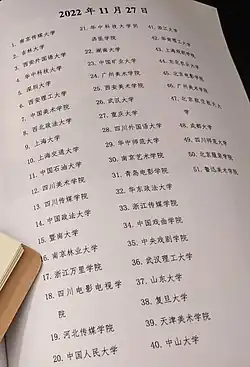 2022 年 11 月 27 日
1. 南京传媒大学
2. 吉林大学
3. 西安外国语大学
4. 华中科技大学
5. 深圳大学
6. 西安理工大学
7. 中国美术学院
8. 西北政法大学
9. 上海大学
10. 上海交通大学
11. 中国石油大学
12. 四川美术学院
13. 四川传媒学院
14. 中国政法大学
15. 暨南大学
16. 南京林业大学
17. 浙江万里学院
18. 四川电影电视学
院
19. 河北传媒学院
20. 中国人民大学
21. 华中科技大学同
济医学院
22. 湖南大学
23. 中国矿业大学
24. 广州美术学院
25. 西安美术学院
26. 武汉大学
27. 重庆大学
28. 四川外国语大学
29. 华中师范大学
30. 南京艺术学院
31. 青岛电影学院
32. 华东政法大学
33. 浙江传媒学院
34. 中国戏曲学院
35. 中央戏剧学院
36. 武汉理工大学
37. 山东大学
38. 复旦大学
39. 天津美术学院
40. 中山大学
41. 浙江大学
42. 华南理工大学
43. 上海戏剧学院
44.
45. 北京电影学院
46. 广州美术学院
47. 北京
学
48. 成都大学
49. 四川师范大学
50. 北京服装学院
51. 鲁迅美术学院